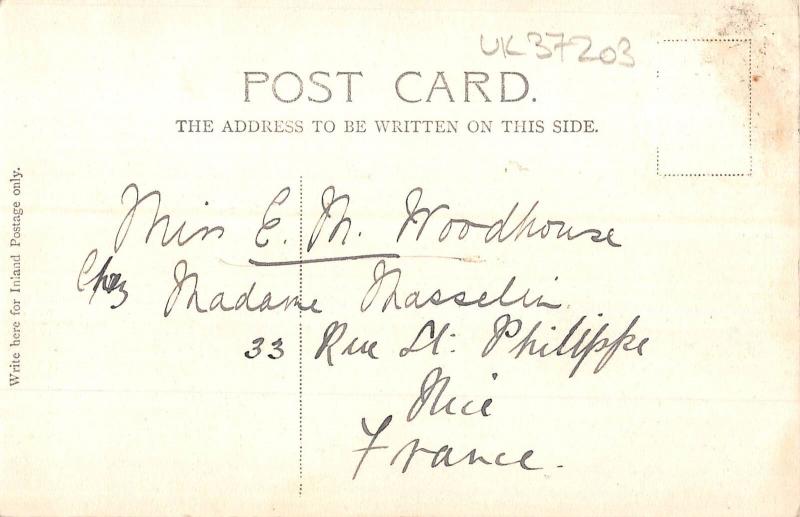 UK37203
POST CARD.
THE ADDRESS TO BE WRITTEN ON THIS SIDE.
Write here for Inland Postage only.
Miss E. M. Woodhouse
Chez Madame Masselin
33 Rue St: Philippe
Nice
France.